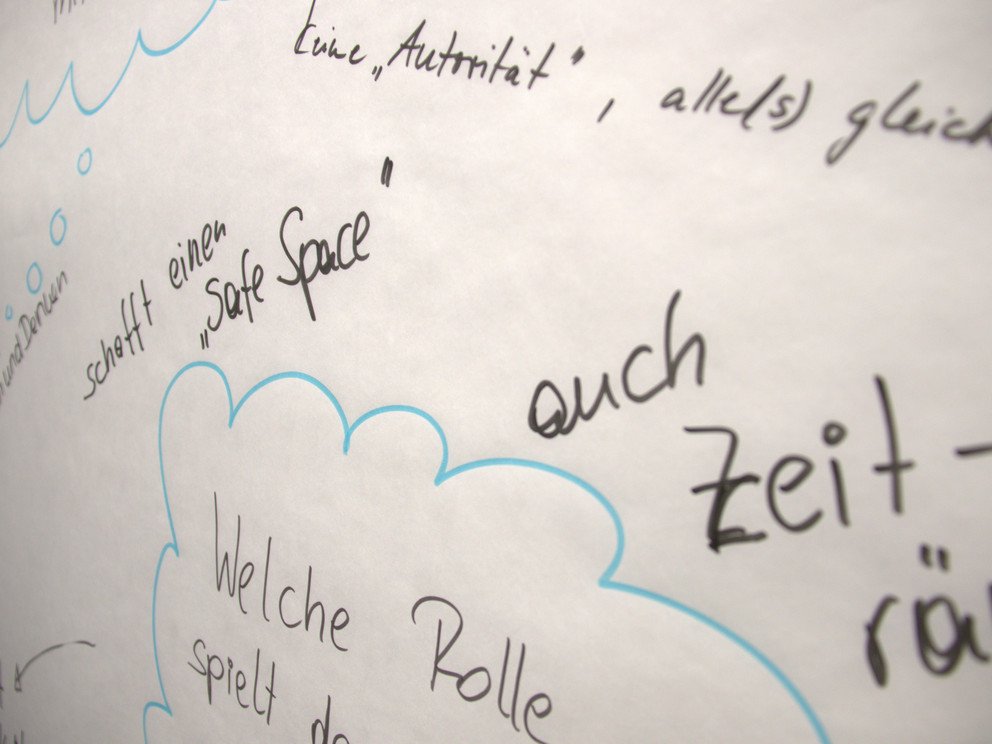 keine „Autorität", alle(s) gleich
schafft einen
„Safe Space"
auch
Zeit-
rä
und Denken
Welche Rolle
spielt